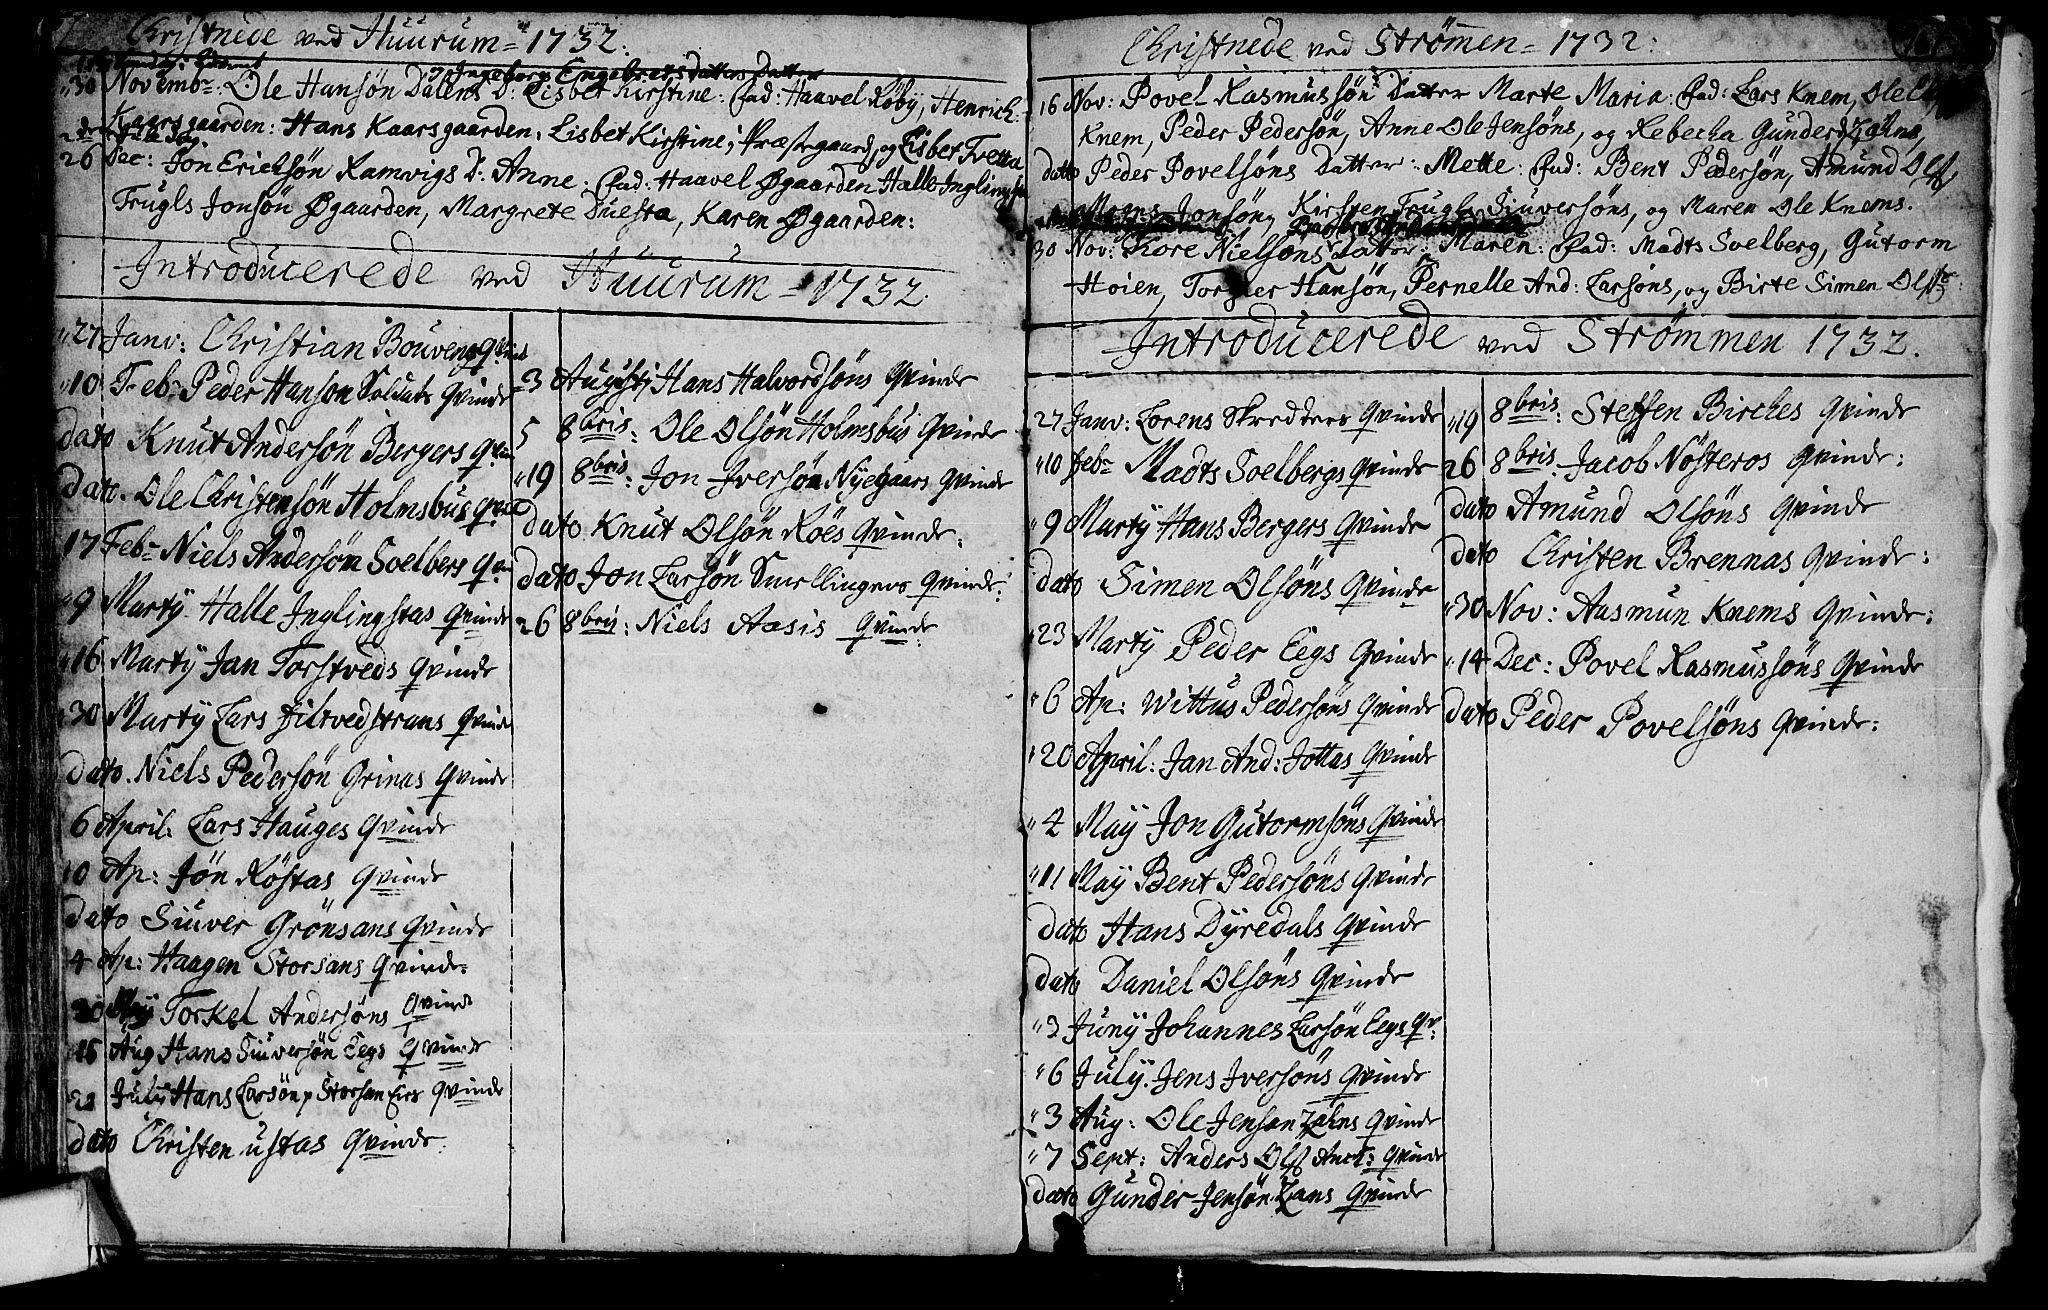 Christnede ved Huurum = 1732.
30 Novembr: Ole Hansøn Dalens D: Lisbet Kirstine: Fad: Haavel Røby, Henrich
og Ingeborg Engebrets Datters Datter
Kaarsgaarden: Hans Kaarsgaarden, Lisbet Kirstine i Præstegaard, og Lisbet Tvetta
26 Dec: Jon Erichsøn Ramvigs D. Anne: Fad: Haavel Øgaarden Halle Inglingsta
Trugls Jonsøn Øgaarden, Margrete Duesta, Karen Øgaarden:
Introducerede ved Huurum = 1732.
27 Janv: Christian Bouvens
10 Feb: Peder Hanson Soldats Qvinde
dato Knut Andersøn Bergers
dato. Ole Christensøn Holmsbus
17 Feb: Niels Andersøn Soelbers
9 Martÿ Halle Inglingstas Qvinde
16 Martÿ Jan Torstveds Qvinde
30 Martÿ Lars Filtvedstrans Qvinde
dato. Niels Pedersøn Grinas Qvinde
6 April: Lars Hauges Qvinde
10 Ap: Jøn Røstas Qvinde
dato Siuver Grønsans Qvinde
4 Ap: Haagen Storsans Qvinde:
20 Maÿ Torkel Andersøns Qvinde
15 Aug Hans Siuversøn Eegs Qvinde
Julÿ Hans Larsøn Storsan Eies Qvinde
dato Christen ustas Qvinde:
3 Augustj Hans Halvordsøns Qvinde
5 8bris: Ole Olsøn Holmsbus Qvinde
19 8bris: Jon Iversøn Nÿegaars Qvinde
dato Knut Olsøn Røes Qvinde:
dato Jon Larsøn Smellingens Qvinde:
26 8bris: Niels Aasis Qvinde:
Christnede ved Strømen = 1732:
16 Nov: Povel Rasmussøn Datter Marte Maria: Fad: Lars Knem, Ole
Knem, Peder Pedersøn, Anne Ole Jensøns, og Rebecka Gunder Zahns,
dato Peder Povelsøns Datter: Mette: Fad: Bent Pedersøn, Amund Ols
Mogens Jonsøn, Kirsten Trugls Siuversøns, og Maren Ole Knems.
30 Nov: Tore Nielsøns Datter: Maren: Fad: Madts Svelberg, Gutorm
Høien, Torgier Hansøn, Pernelle And: Larsøns, og Birte Simen Ols:
Introducerede ved Strømmen 1732.
27 Janv: Lorens Skredders Qvinde
10 feb: Madts Soelbergs Qvinde
9 Martÿ Hans Bergers Qvinde
dato Simen Olsøns Qvinde
23 Martÿ Peder Eegs Qvinde
6 Ap: Wittus Pedersøns Qvinde
20 April: Jan And: Jottas Qvinde
4 Maÿ Jon Gutormsøns Qvinde
11 Maÿ Bent Pedersøns Qvinde
dato Hans Dÿredals Qvinde
dato Daniel Olsøns Qvinde
2 Junÿ Johannes Larsøn Eegs Qv:
6 Julÿ. Jens Iversøns Qvinde
3 Aug: Ole Jensøn Zahns Qvinde
7 Sept: Anders Ols Qvinde
dato Gunder Jensøn Zans Qvinde
19 8bris: Steffen Birches Qvinde
26 8bris: Jacob Nøsteros Qvinde:
dato Amund Olsøns Qvinde
dato Christen Brennas Qvinde:
30 Nov: Aasmun Knems Qvinde:
14 Dec: Povel Rasmussøns Qvinde
dato Peder Povelsøns Qvinde: